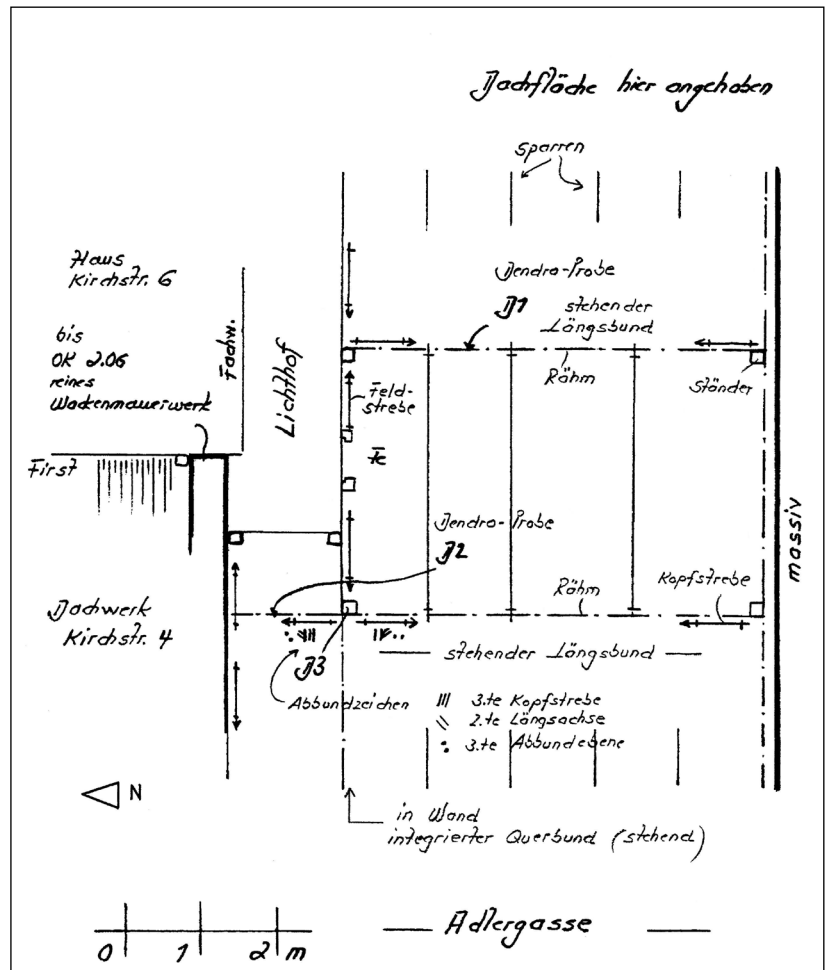 Dachfläche hier angehoben
Sparren
Haus
Kirchstr. 6
bis
OK 2.OG
reines
Wackenmauerwerk
Fachw.
Lichthof
Dendro-Probe
D1
stehender
Längsbund
Rähm
Ständer
Feld-
strebe
First
Dendro-Probe
D2
massiv
Dachwerk
Kirchstr. 4
Rähm
Kopfstrebe
D3
stehender Längsbund
Abbundzeichen
3.te Kopfstrebe
2.te Längsachse
3.te Abbundebene
N
in Wand
integrierter Querbund (stehend)
Adlergasse
0 1 2 m